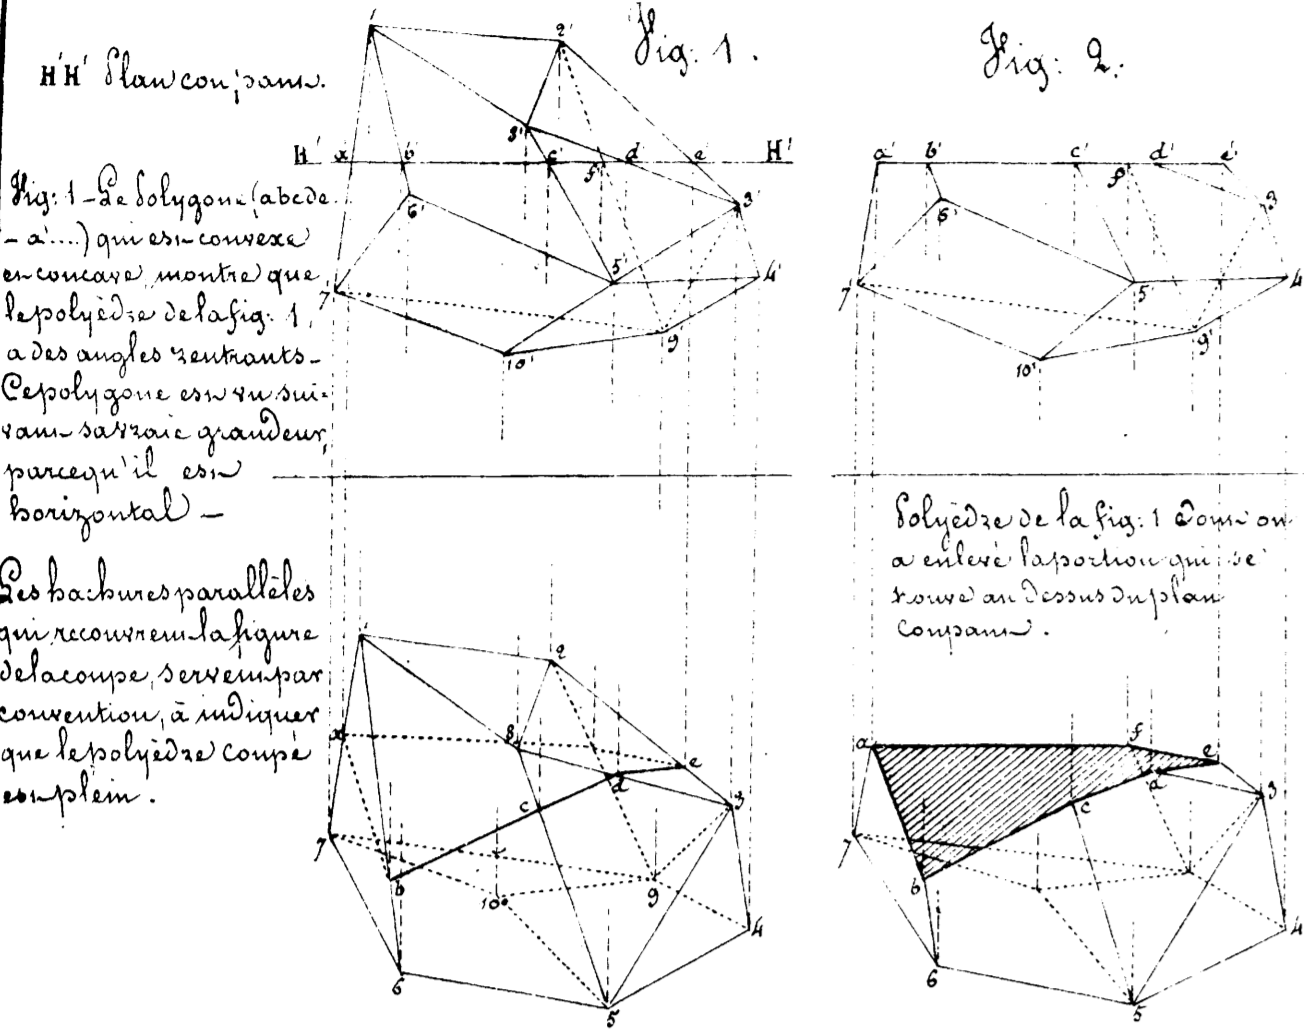 Fig: 1.
Fig: 2.
H'H' Plan coupant.
Fig: 1 - Le Polygone (abcde
- a'....) qui est convexe
et concave, montre que
le polyèdre de la fig: 1,
a des angles rentrants -
Ce polygone est vu sui-
vant sa vraie grandeur,
parcequ'il est
horizontal -
Les hachures parallèles
qui recouvrent la figure
de la coupe, servent par
convention, à indiquer
que le polyèdre coupé
est plein.
1'
2'
8'
H' a b' c' f' d' e' H'
3'
6'
5'
4'
7'
9
10'
a' b' c' f' d' e'
3
6'
5
4
7
9'
10'
Polyèdre de la fig: 1 dont on
a enlevé la portion qui se
trouve au dessus du plan
coupant.
1
2
a
8
e
d
c
3
7
b
10
9
4
6
5
a
f
e
d
c
3
7
b
4
6
5